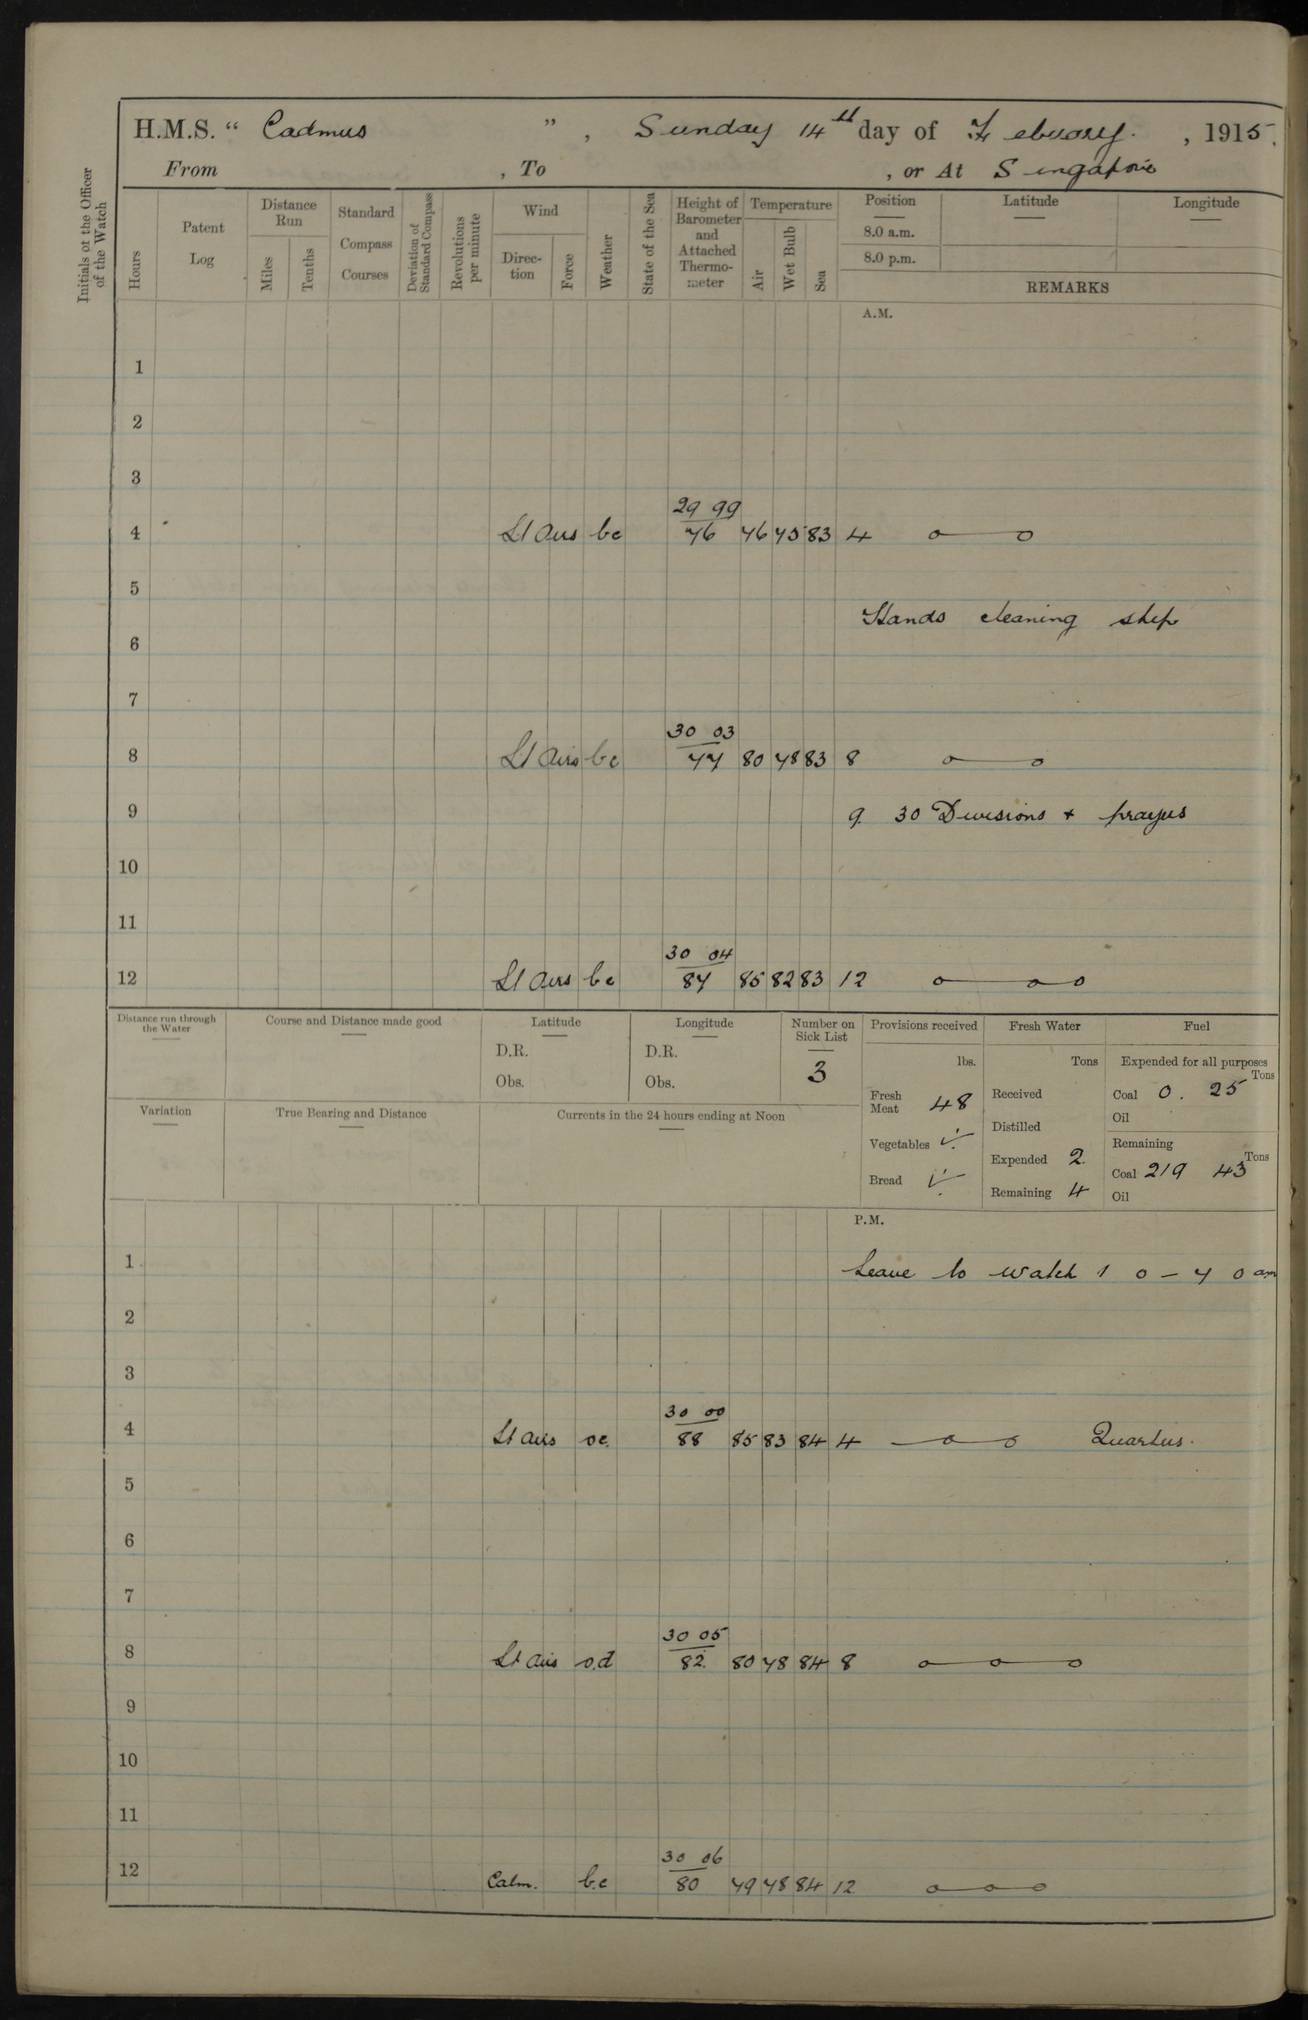 H.M.S. “ Cadmus ” , Sunday 14th day of Febuary. , 1915.
From , To , or At Singapore
Initials of the Officer of the Watch
Hours
Patent Log
Distance Run
Miles
Tenths
Standard Compass Courses
Deviation of Standard Compass
Revolutions per minute
Wind
Direction
Force
Weather
State of the Sea
Height of Barometer and Attached Thermometer
Temperature
Air
Wet Bulb
Sea
Position
8.0 a.m.
8.0 p.m.
Latitude
Longitude
REMARKS
A.M.
1
2
3
29 99
4 Lt Airs bc 76 76 75 83 4
5
Hands cleaning ship
6
7
30 03
8 Lt Airs bc 77 80 78 83 8
9 9. 30 Divisions + prayers
10
11
30 04
12 Lt Airs bc 87 85 82 83 12
Distance run through the Water
Course and Distance made good
Latitude
D.R.
Obs.
Longitude
D.R.
Obs.
Number on Sick List
3
Provisions received
lbs.
Fresh Meat 48
Vegetables
Bread
Fresh Water
Tons
Received
Distilled
Expended 2.
Remaining 4
Fuel
Expended for all purposes
Tons
Coal 0. 25
Oil
Remaining
Tons
Coal 219 43
Oil
Variation
True Bearing and Distance
Currents in the 24 hours ending at Noon
P.M.
1 Leave to watch 1 0 – 7 0 am
2
3
30 00
4 Lt airs oc. 88 85 83 84 4 Quarters.
5
6
7
30 05
8 Lt airs o.d 82. 80 78 84 8
9
10
11
30 06
12 Calm. b.c 80 79 78 84 12